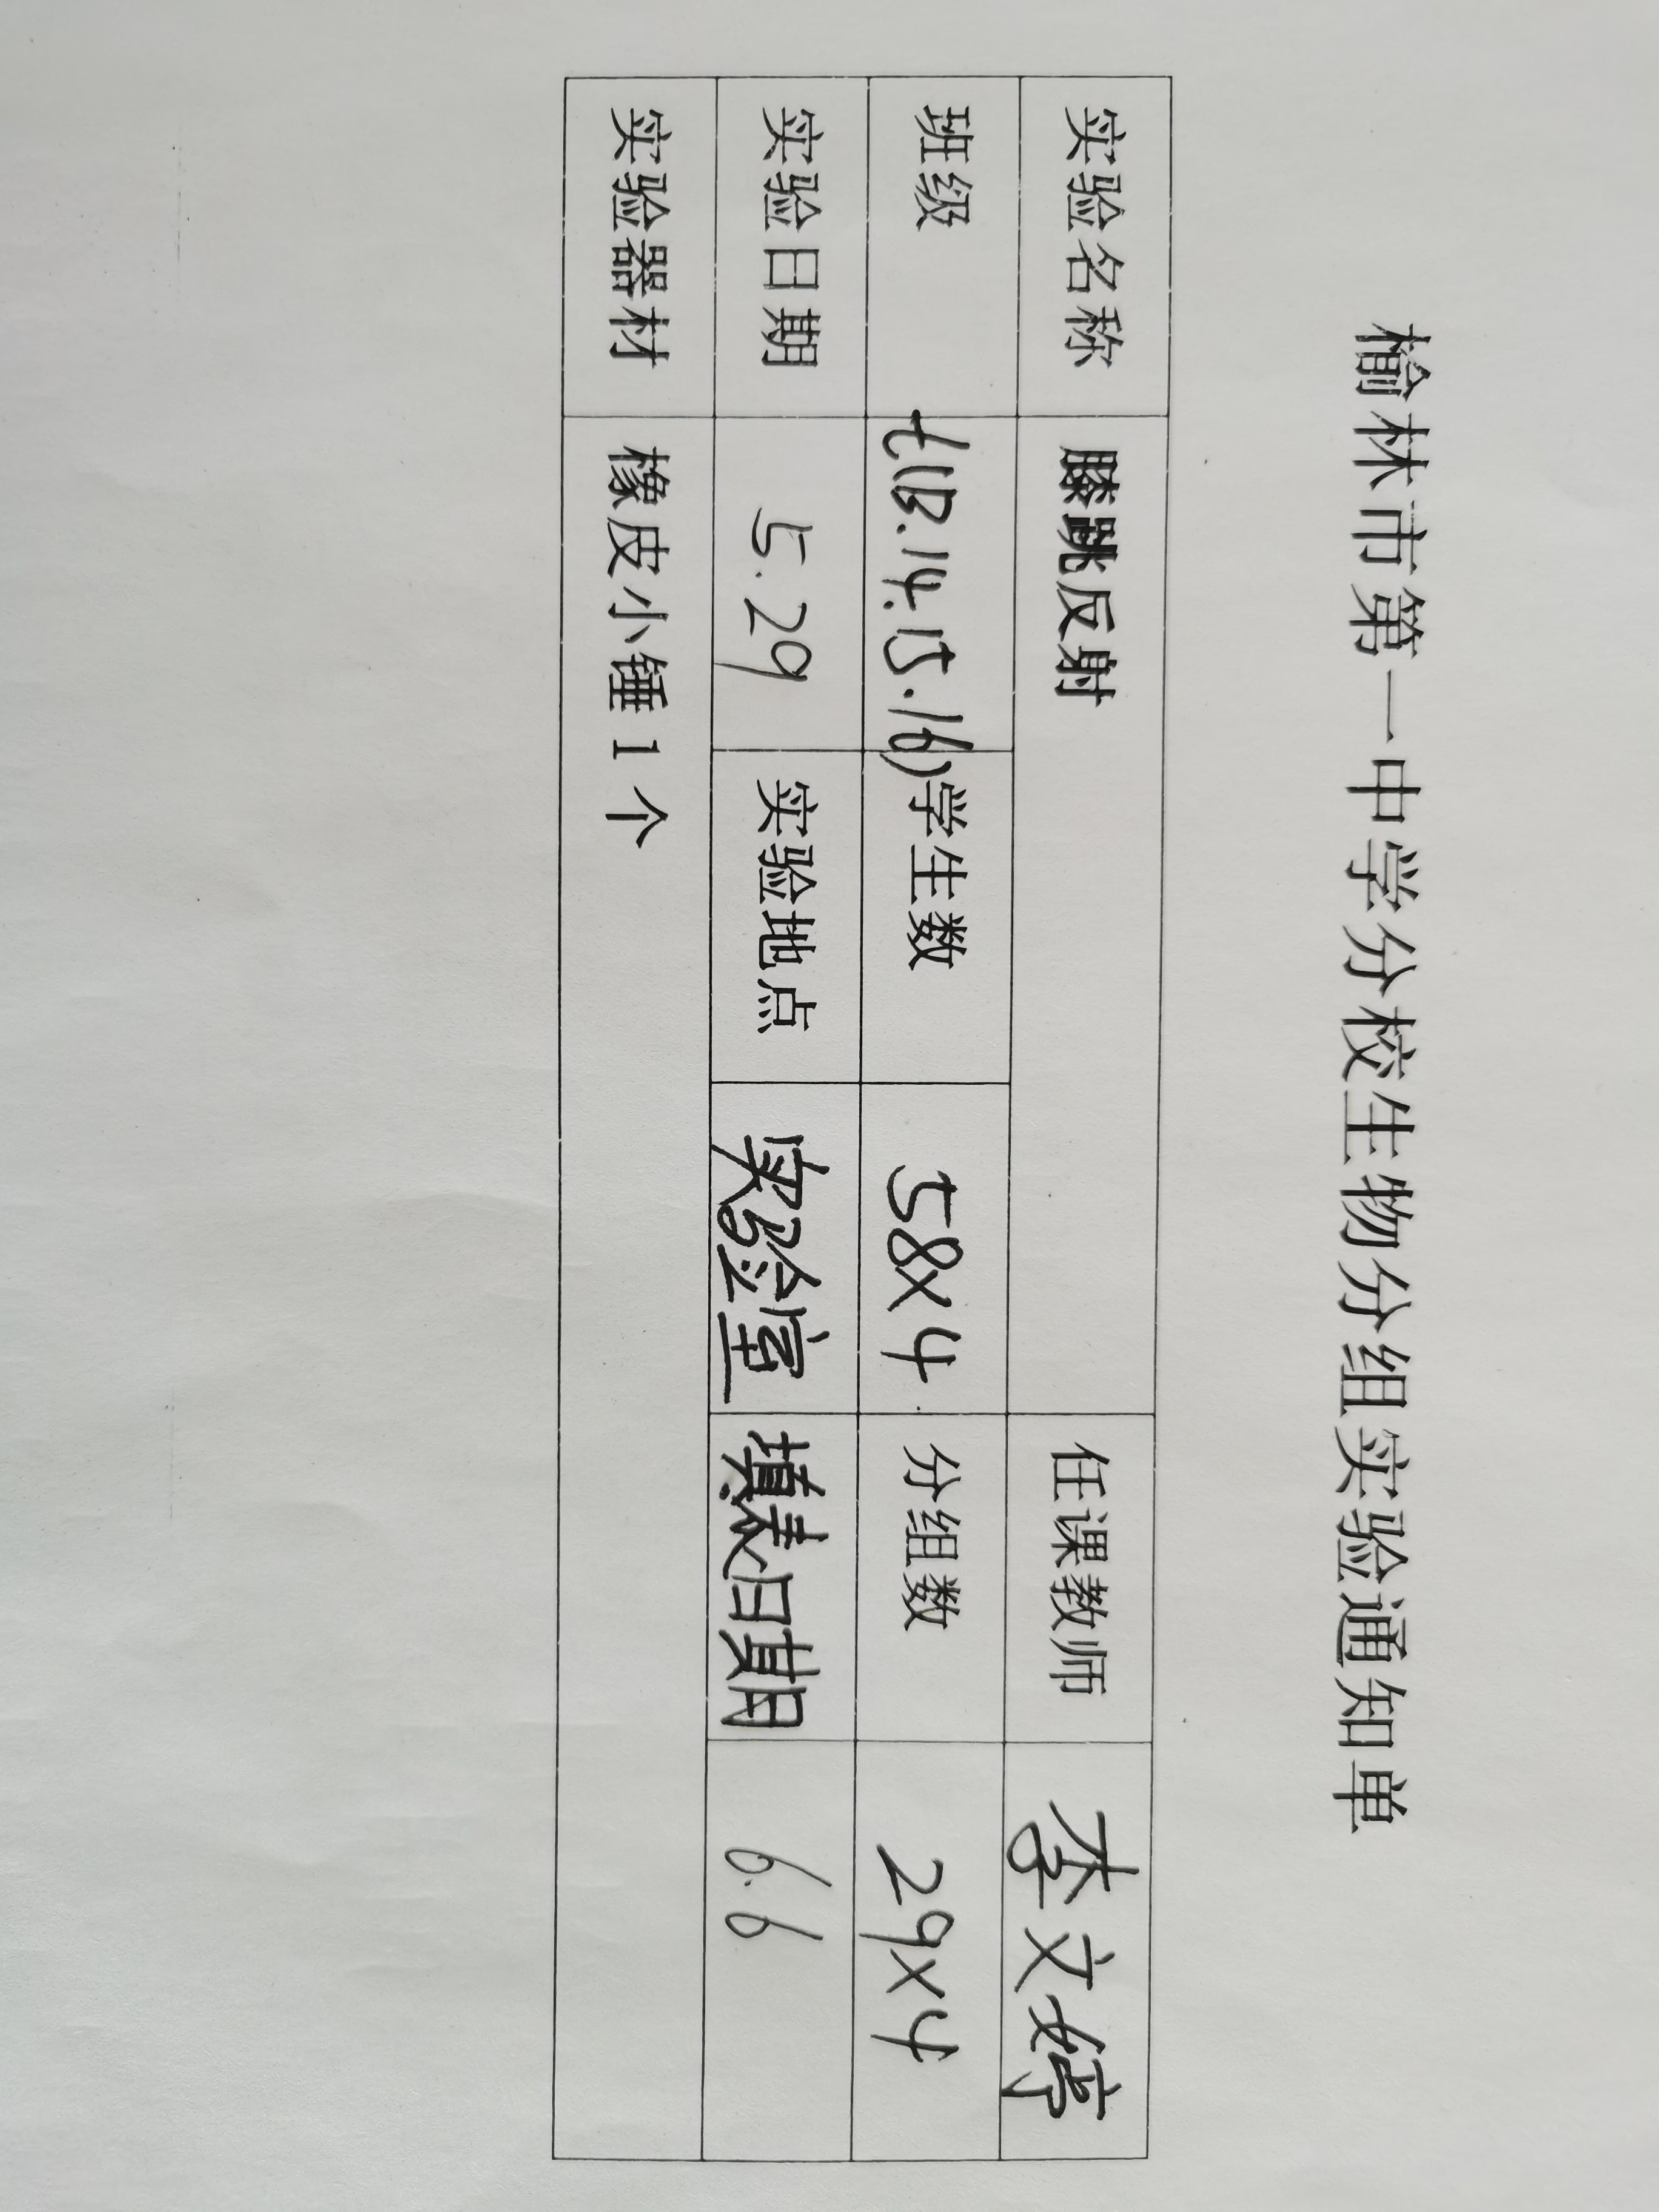 榆林市第一中学分校生物分组实验通知单
实验名称 膝跳反射 任课教师 李文婷
班级 七(13.14.15.16) 学生数 58×4 分组数 29×4
实验日期 5.29 实验地点 实验室 填表日期 6.6
实验器材 橡皮小锤1个